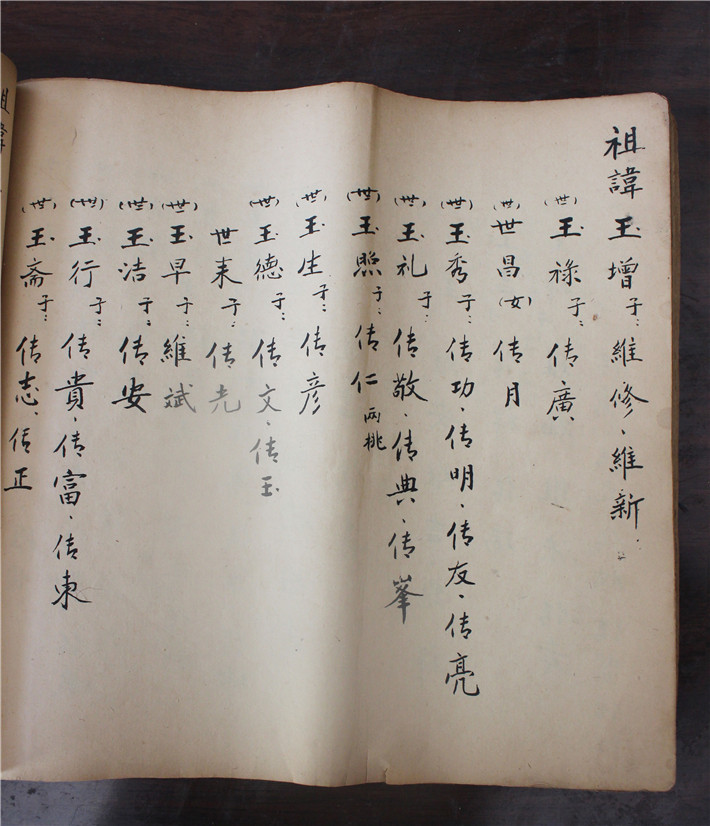 祖諱玉增子：維修、維新
(世)玉祿子：傳廣
(世)世昌(女)傳月
(世)玉秀子：傳功、傳明、傳友、傳亮
(世)玉礼子：傳敬、傳典、傳峯
(世)玉照子：傳仁兩祧
(世)玉生子：傳彦
(世)玉德子：傳文、傳玉
世来子：傳光
(世)玉早子：維斌
(世)玉洁子：傳安
(世)玉行子：傳貴、傳富、傳東
(世)玉斋子：傳志、傳正
祖諱